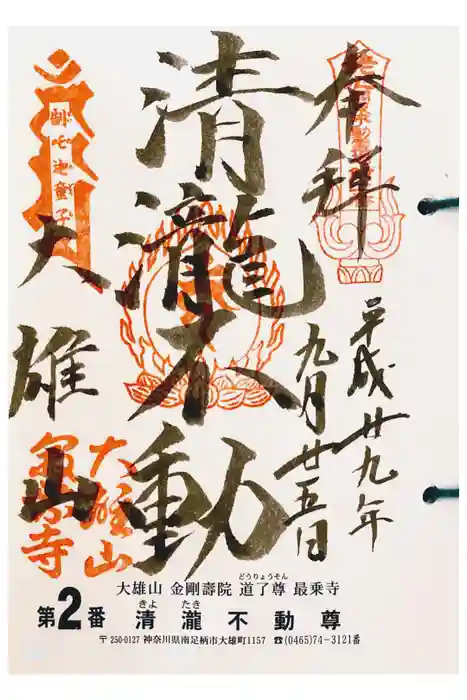 奉拝
平成廿九年
九月廿五日
清瀧不動
大雄山
大雄山
大雄山 金剛壽院 道了尊 最乗寺
どうりょうそん
第2番 清瀧不動尊
きよ たき
〒250-0127 神奈川県南足柄市大雄町1157 ☎(0465)74-3121番